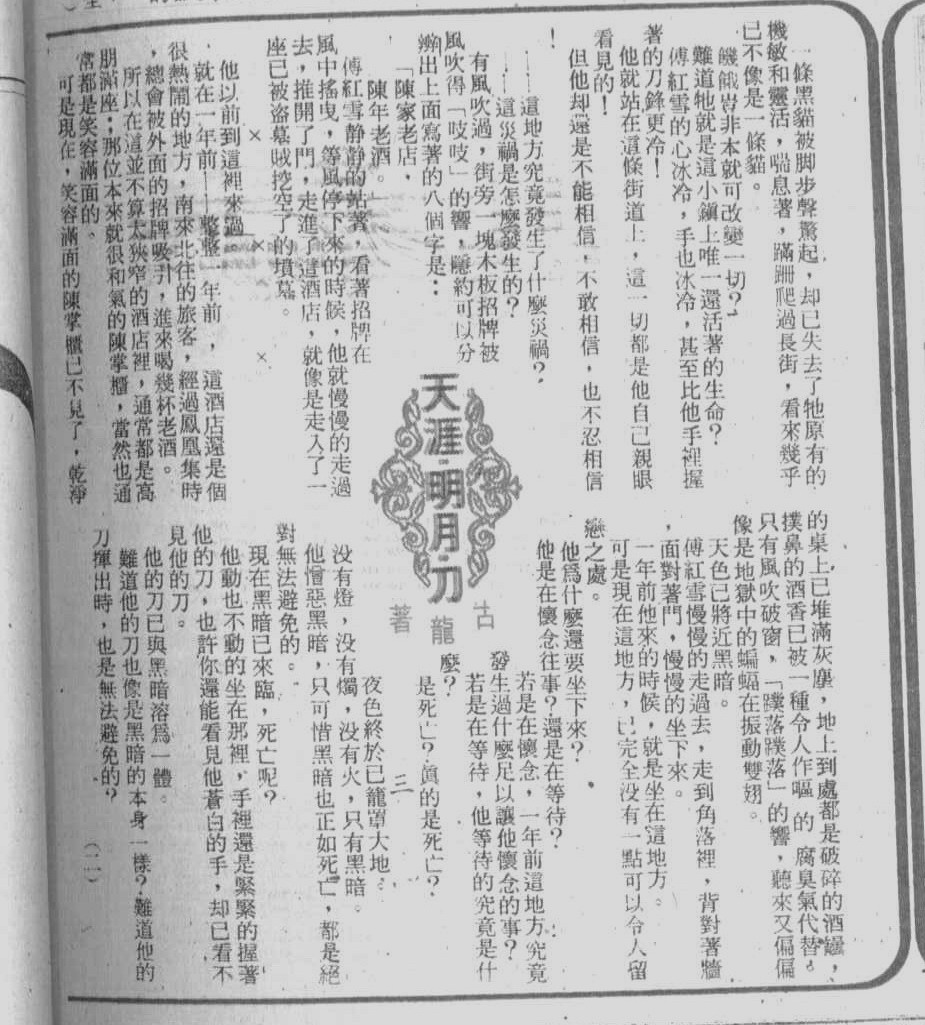 一條黑貓被脚步聲驚起，却已失去了牠原有的
機敏和靈活，喘息著，蹣跚爬過長街，看來幾乎
已不像是一條貓。
饑餓豈非本就可改變一切？
難道牠就是這小鎭上唯一還活著的生命？
傅紅雪的心冰冷，手也冰冷，甚至比他手裡握
著的刀鋒更冷！
他就站在這條街道上，這一切都是他自己親眼
看見的！
但他却還是不能相信，不敢相信，也不忍相信
！
……這地方究竟發生了什麼災禍？
……這災禍是怎麼發生的？
有風吹過，街旁一塊木板招牌被
風吹得「吱吱」的響，隱約可以分
辨出上面寫著的八個字是：
「陳家老店，
陳年老酒。」
傅紅雪静静的站著，看著招牌在
風中搖曳，等風停下來的時候，他就慢慢的走過
去，推開了門，走進了這酒店，就像是走入了一
座已被盜墓賊挖空了的墳墓。
×　×　×
他以前到這裡來過。
就在一年前——整整一年前，這酒店還是個
很熱鬧的地方，南來北往的旅客，經過鳳凰集時
，總會被外面的招牌吸引，進來喝幾杯老酒。
所以在這並不算太狹窄的酒店裡，通常都是高
朋滿座；那位本來就很和氣的陳掌櫃，當然也通
常都是笑容滿面的。
可是現在，笑容滿面的陳掌櫃已不見了，乾淨
天涯·明月·刀
古龍著
的桌上已堆滿灰塵，地上到處都是破碎的酒罎，
撲鼻的酒香已被一種令人作嘔的腐臭氣代替。
只有風吹破窗，「蹼落蹼落」的響，聽來又偏偏
像是地獄中的蝙蝠在振動雙翅。
天色已將近黑暗。
傅紅雪慢慢的走過去，走到角落裡，背對著牆
，面對著門，慢慢的坐下來。
一年前他來的時候，就是坐在這地方。
可是現在這地方，已完全没有一點可以令人留
戀之處。
他爲什麼還要坐下來？
他是在懷念往事？還是在等待？
若是在懷念，一年前這地方究竟
發生過什麼足以讓他懷念的事？
若是在等待，他等待的究竟是什
麼？
是死亡？眞的是死亡？
三
夜色終於已籠罩大地。
没有燈，没有燭，没有火，只有黑暗。
他憎惡黑暗，只可惜黑暗也正如死亡，都是絕
對無法避免的。
現在黑暗已來臨，死亡呢？
他動也不動的坐在那裡，手裡還是緊緊的握著
他的刀，也許你還能看見他蒼白的手，却已看不
見他的刀。
他的刀已與黑暗溶爲一體。
難道他的刀也像是黑暗的本身一樣？難道他的
刀揮出時，也是無法避免的？
（二）